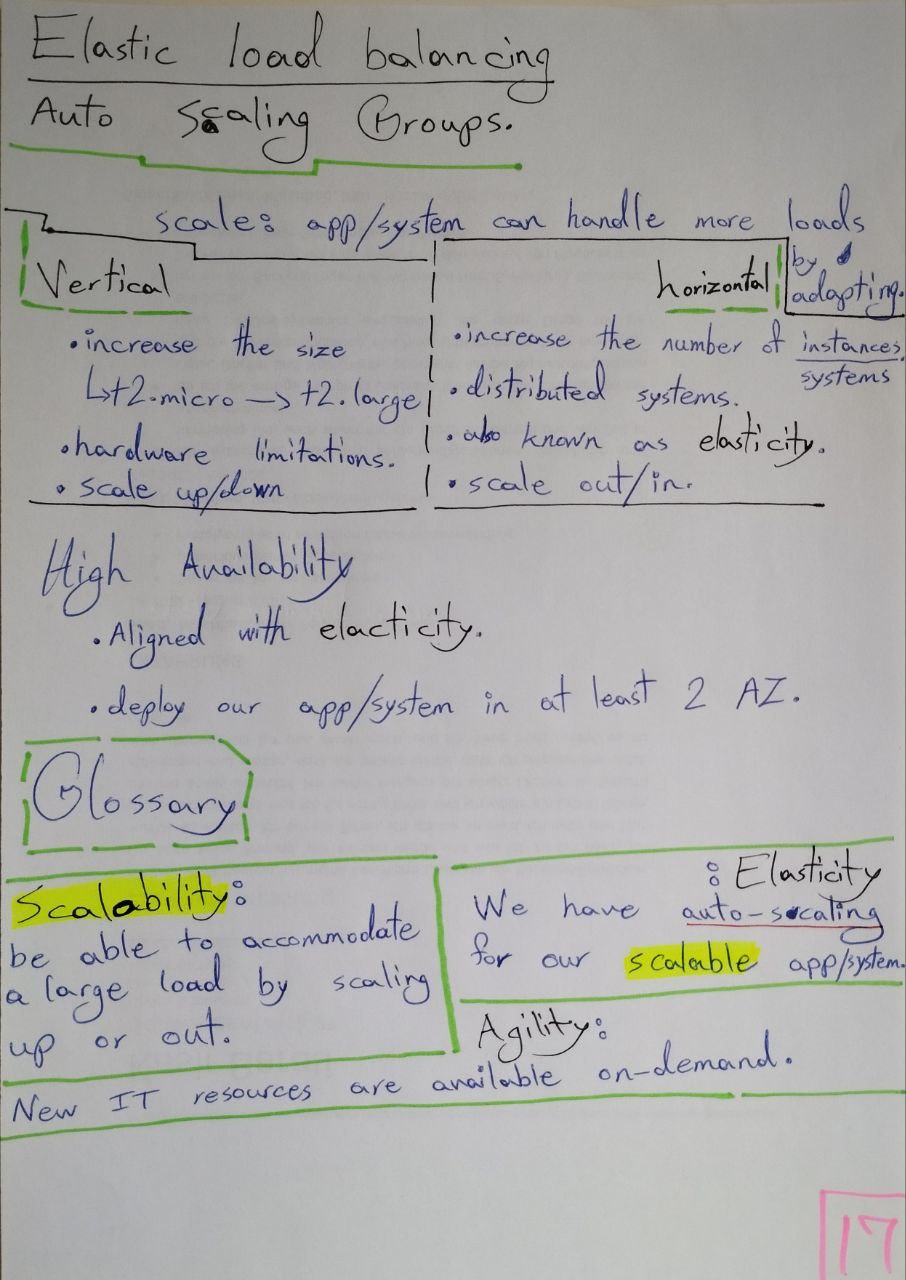 Elastic load balancing
Auto Scaling Groups.
scale: app/system can handle more loads
by
adapting.
Vertical
• increase the size
↳ t2.micro → t2.large
• hardware limitations.
• scale up/down
horizontal
• increase the number of instances
systems
• distributed systems.
• also known as elasticity.
• scale out/in.
High Availability
• Aligned with elacticity.
• deploy our app/system in at least 2 AZ.
Glossary
Scalability:
be able to accommodate
a large load by scaling
up or out.
: Elasticity
We have auto-scaling
for our scalable app/system.
Agility:
New IT resources are available on-demand.
17